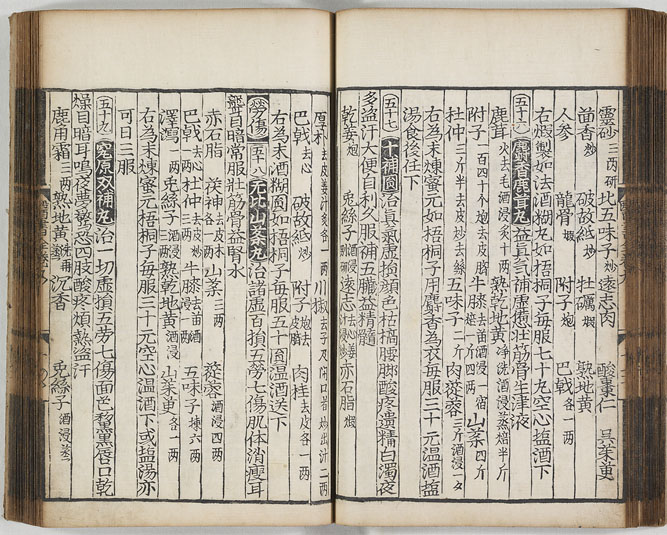 靈砂三兩研 北五味子炒 遠志肉 酸棗仁 吳茱萸
茴香炒 破故紙炒 牡礪煆 熟地黃
人參 龍骨煆 附子炮 巴戟各一兩
右煆製如法酒糊丸如梧桐子每服七十丸空心塩酒下
五十六 麝香鹿茸丸 益真氣補虛憊壯筋骨生津液
鹿茸火去毛酒浸炙十兩 熟乾地黃淨洗酒浸蒸焙半斤
附子一百四十个炮去皮臍 牛膝去苗酒浸一宿焙一斤四兩 山藥四斤
杜仲三斤半去皮炒去絲 五味子二斤 肉蓯蓉三斤酒浸一夕
右為末煉蜜元如梧桐子用麝香為衣每服三十元温酒塩
湯食後任下
五十七 十補圓 治真氣虛損顏色枯槁腰脚酸疼遺精白濁夜
多盗汗大便自利久服補五臟益精髓
乾姜炮 兔絲子酒浸 遠志 赤石脂煆
厚朴去皮姜汁炙各一兩 川椒去子及閉口者炒出汗二兩
巴戟去心 破故紙炒 附子炮去皮臍 肉桂去皮各一兩
右為末酒糊圓如梧桐子每服五十圓温酒送下
勞傷 五十八 无比山藥丸 治諸虛百損五勞七傷肌体消瘦耳
聾目暗常服壯筋骨益腎水
赤石脂 茯神各一兩去皮木 山藥三兩 蓯蓉酒浸四兩
巴戟一兩去心 杜仲三兩去皮炒 牛膝去苗酒浸一兩 五味子揀六兩
澤瀉一兩 兎絲子酒浸三兩 熟乾地黃酒浸 山茱萸各一兩
右為末煉蜜元梧桐子毎服三十元空心温酒下或塩湯亦
可日三服
五十九 究原双補丸 治一切虛損五勞七傷面色黧黑唇口乾
燥目暗耳鳴夜夢驚恐四肢酸疼煩熱盜汗
鹿角霜三兩 熟地黃洗再蒸 沉香 兎絲子酒浸蒸